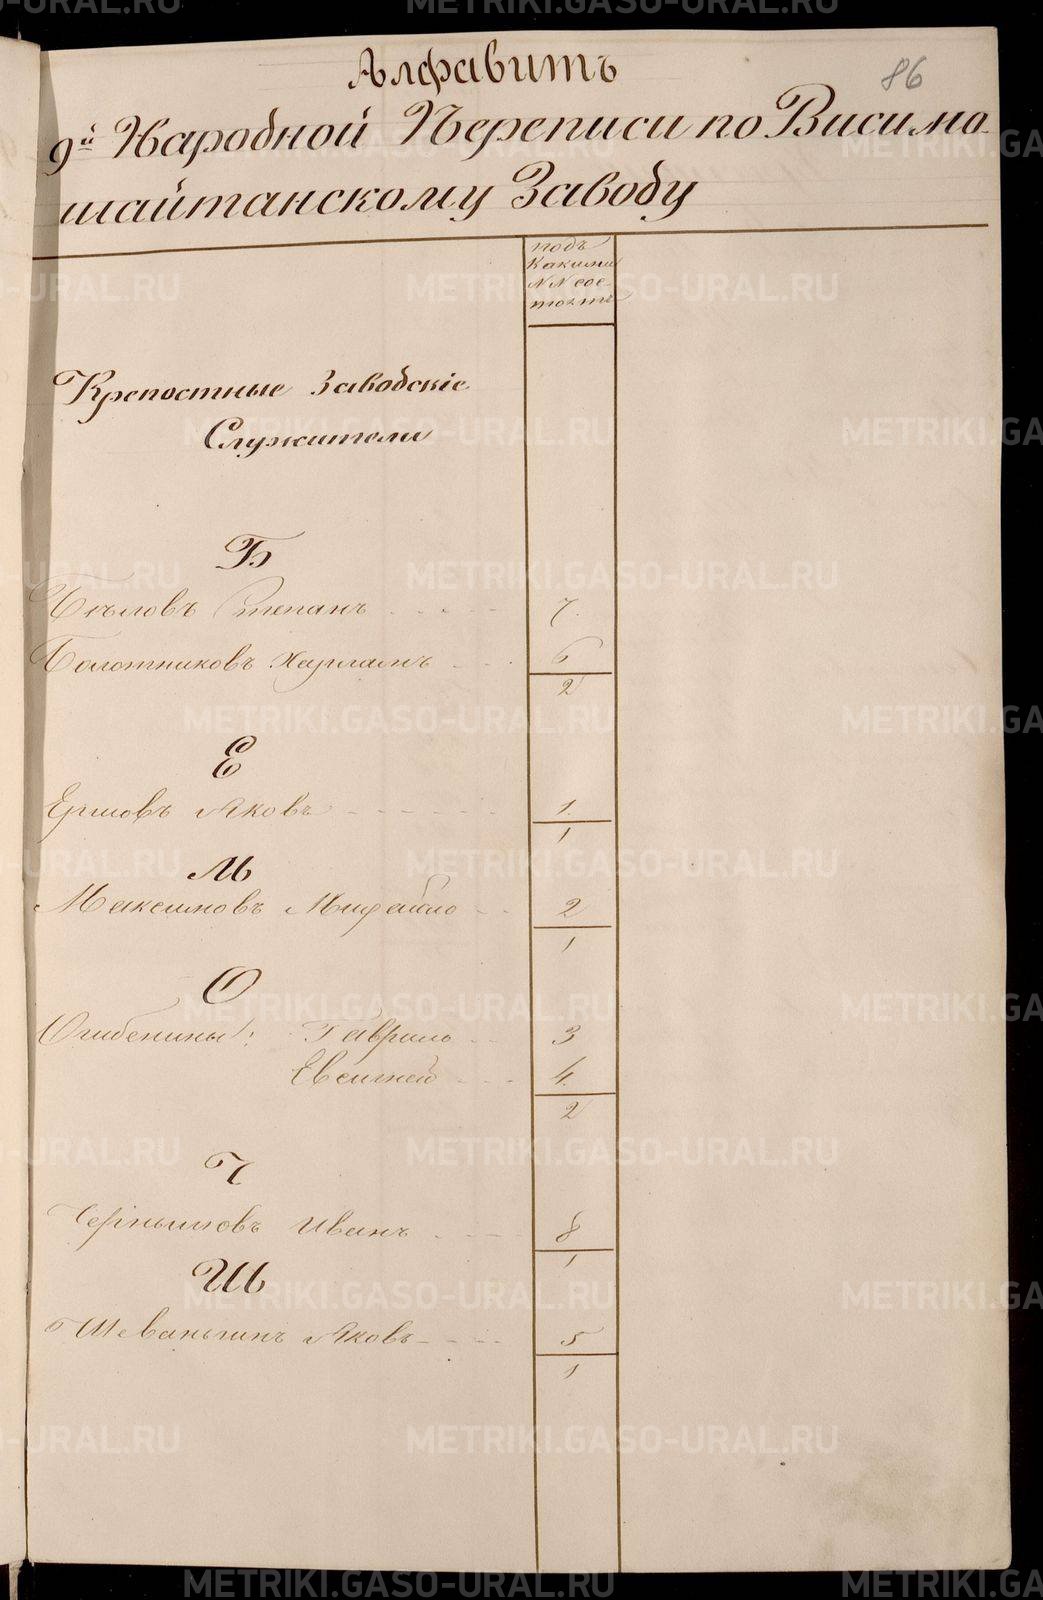 Алфавитъ
86
9й Народной Переписи по Висимо-
шайтанскому Заводу
подъ
Какими
NN сос-
тоятъ
Крепостные Заводскіе
Служители
Б
Бѣловъ Степанъ 7.
Болотниковъ Харламъ 6
2
Е
Ершовъ Яковъ 1.
1
М
Максимовъ Михайло 2
1
О
Огибенины: Гаврило 3
Евсигней 4.
2
Ч
Чернышовъ Иванъ 8
1
Ш
Шеваньгинъ Яковъ 5
1
METRIKI.GASO-URAL.RU